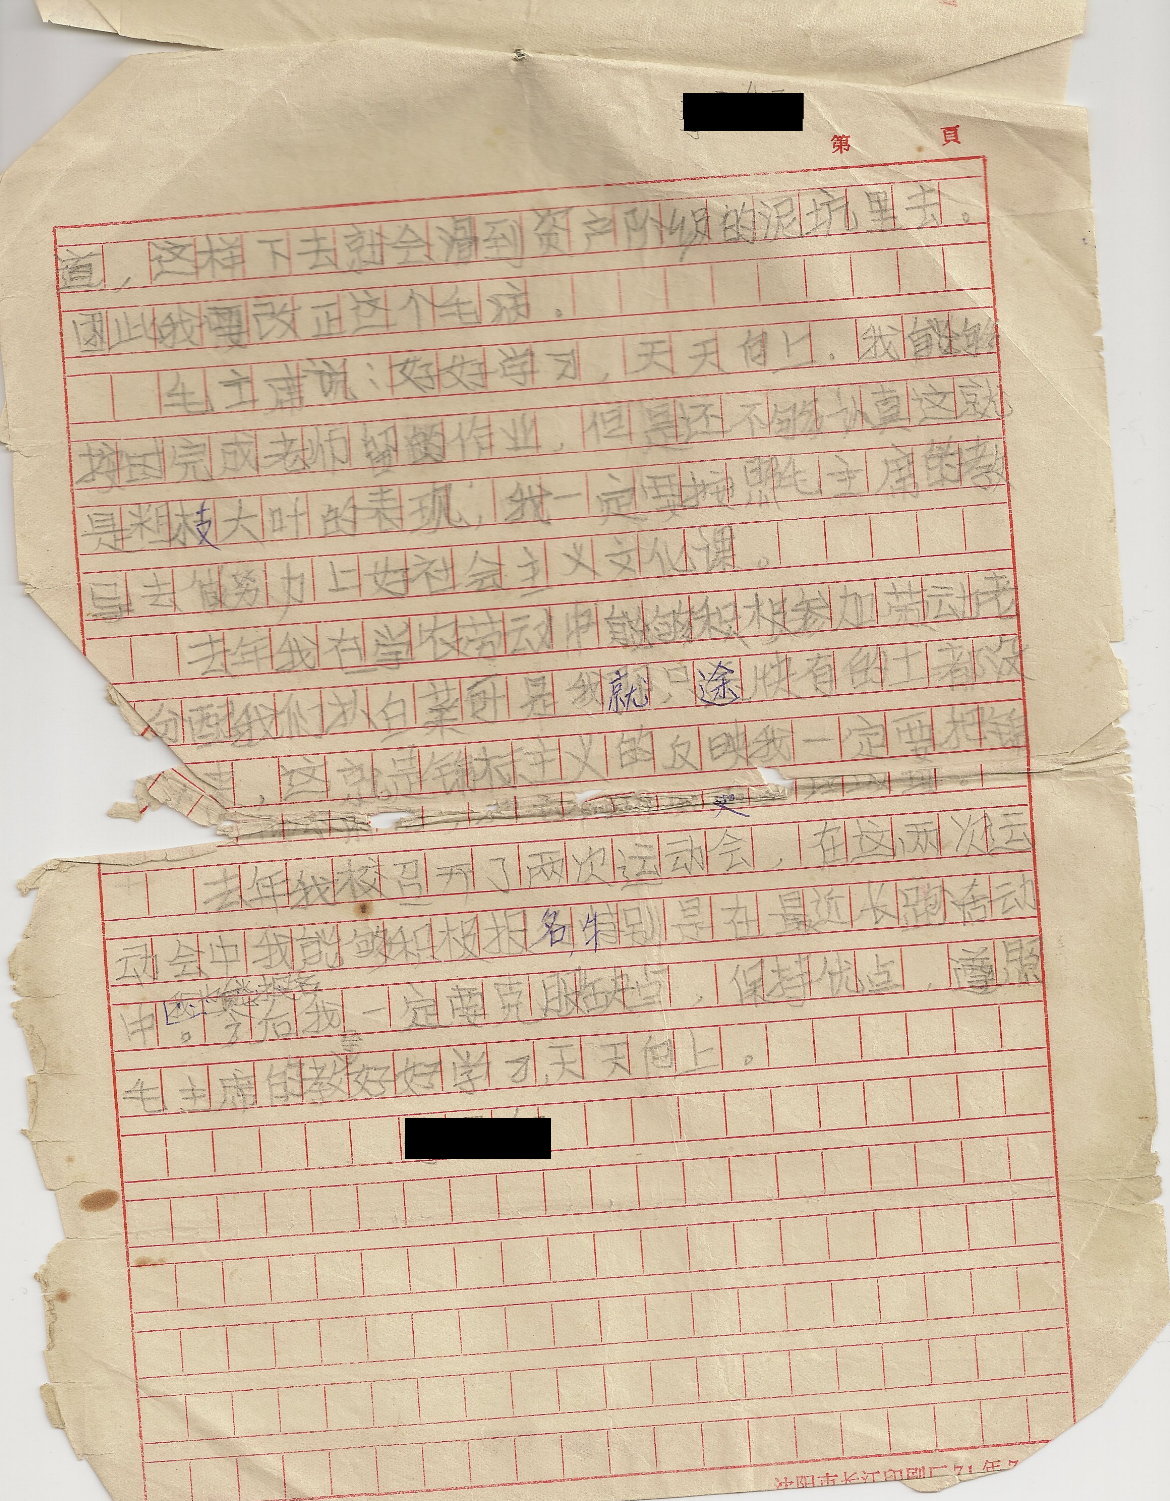 第 頁
道，这样下去就会滑到资产阶级的泥坑里去。
因此我要改正这个毛病.
毛主席说：好好学习，天天向上.我能够
按时完成老师留的作业.但是还不够认真这就
是粗枝大叶的表现，我一定要按照毛主席的教
导去做努力上好社会主义文化课。
去年我在学农劳动中能够积极参加劳动老
分配我们扒白菜可是我就只途快有的土都没
，这就是锦标主义的反映我一定要把锦
去年我校召开了两次运动会，在这两次运
动会中我能够积极报名特别是在最近长跑活动
中。今后我一定要克服缺点，保持优点，遵照
毛主席的教导好好学习天天向上。
沈阳市长江印刷厂71年7